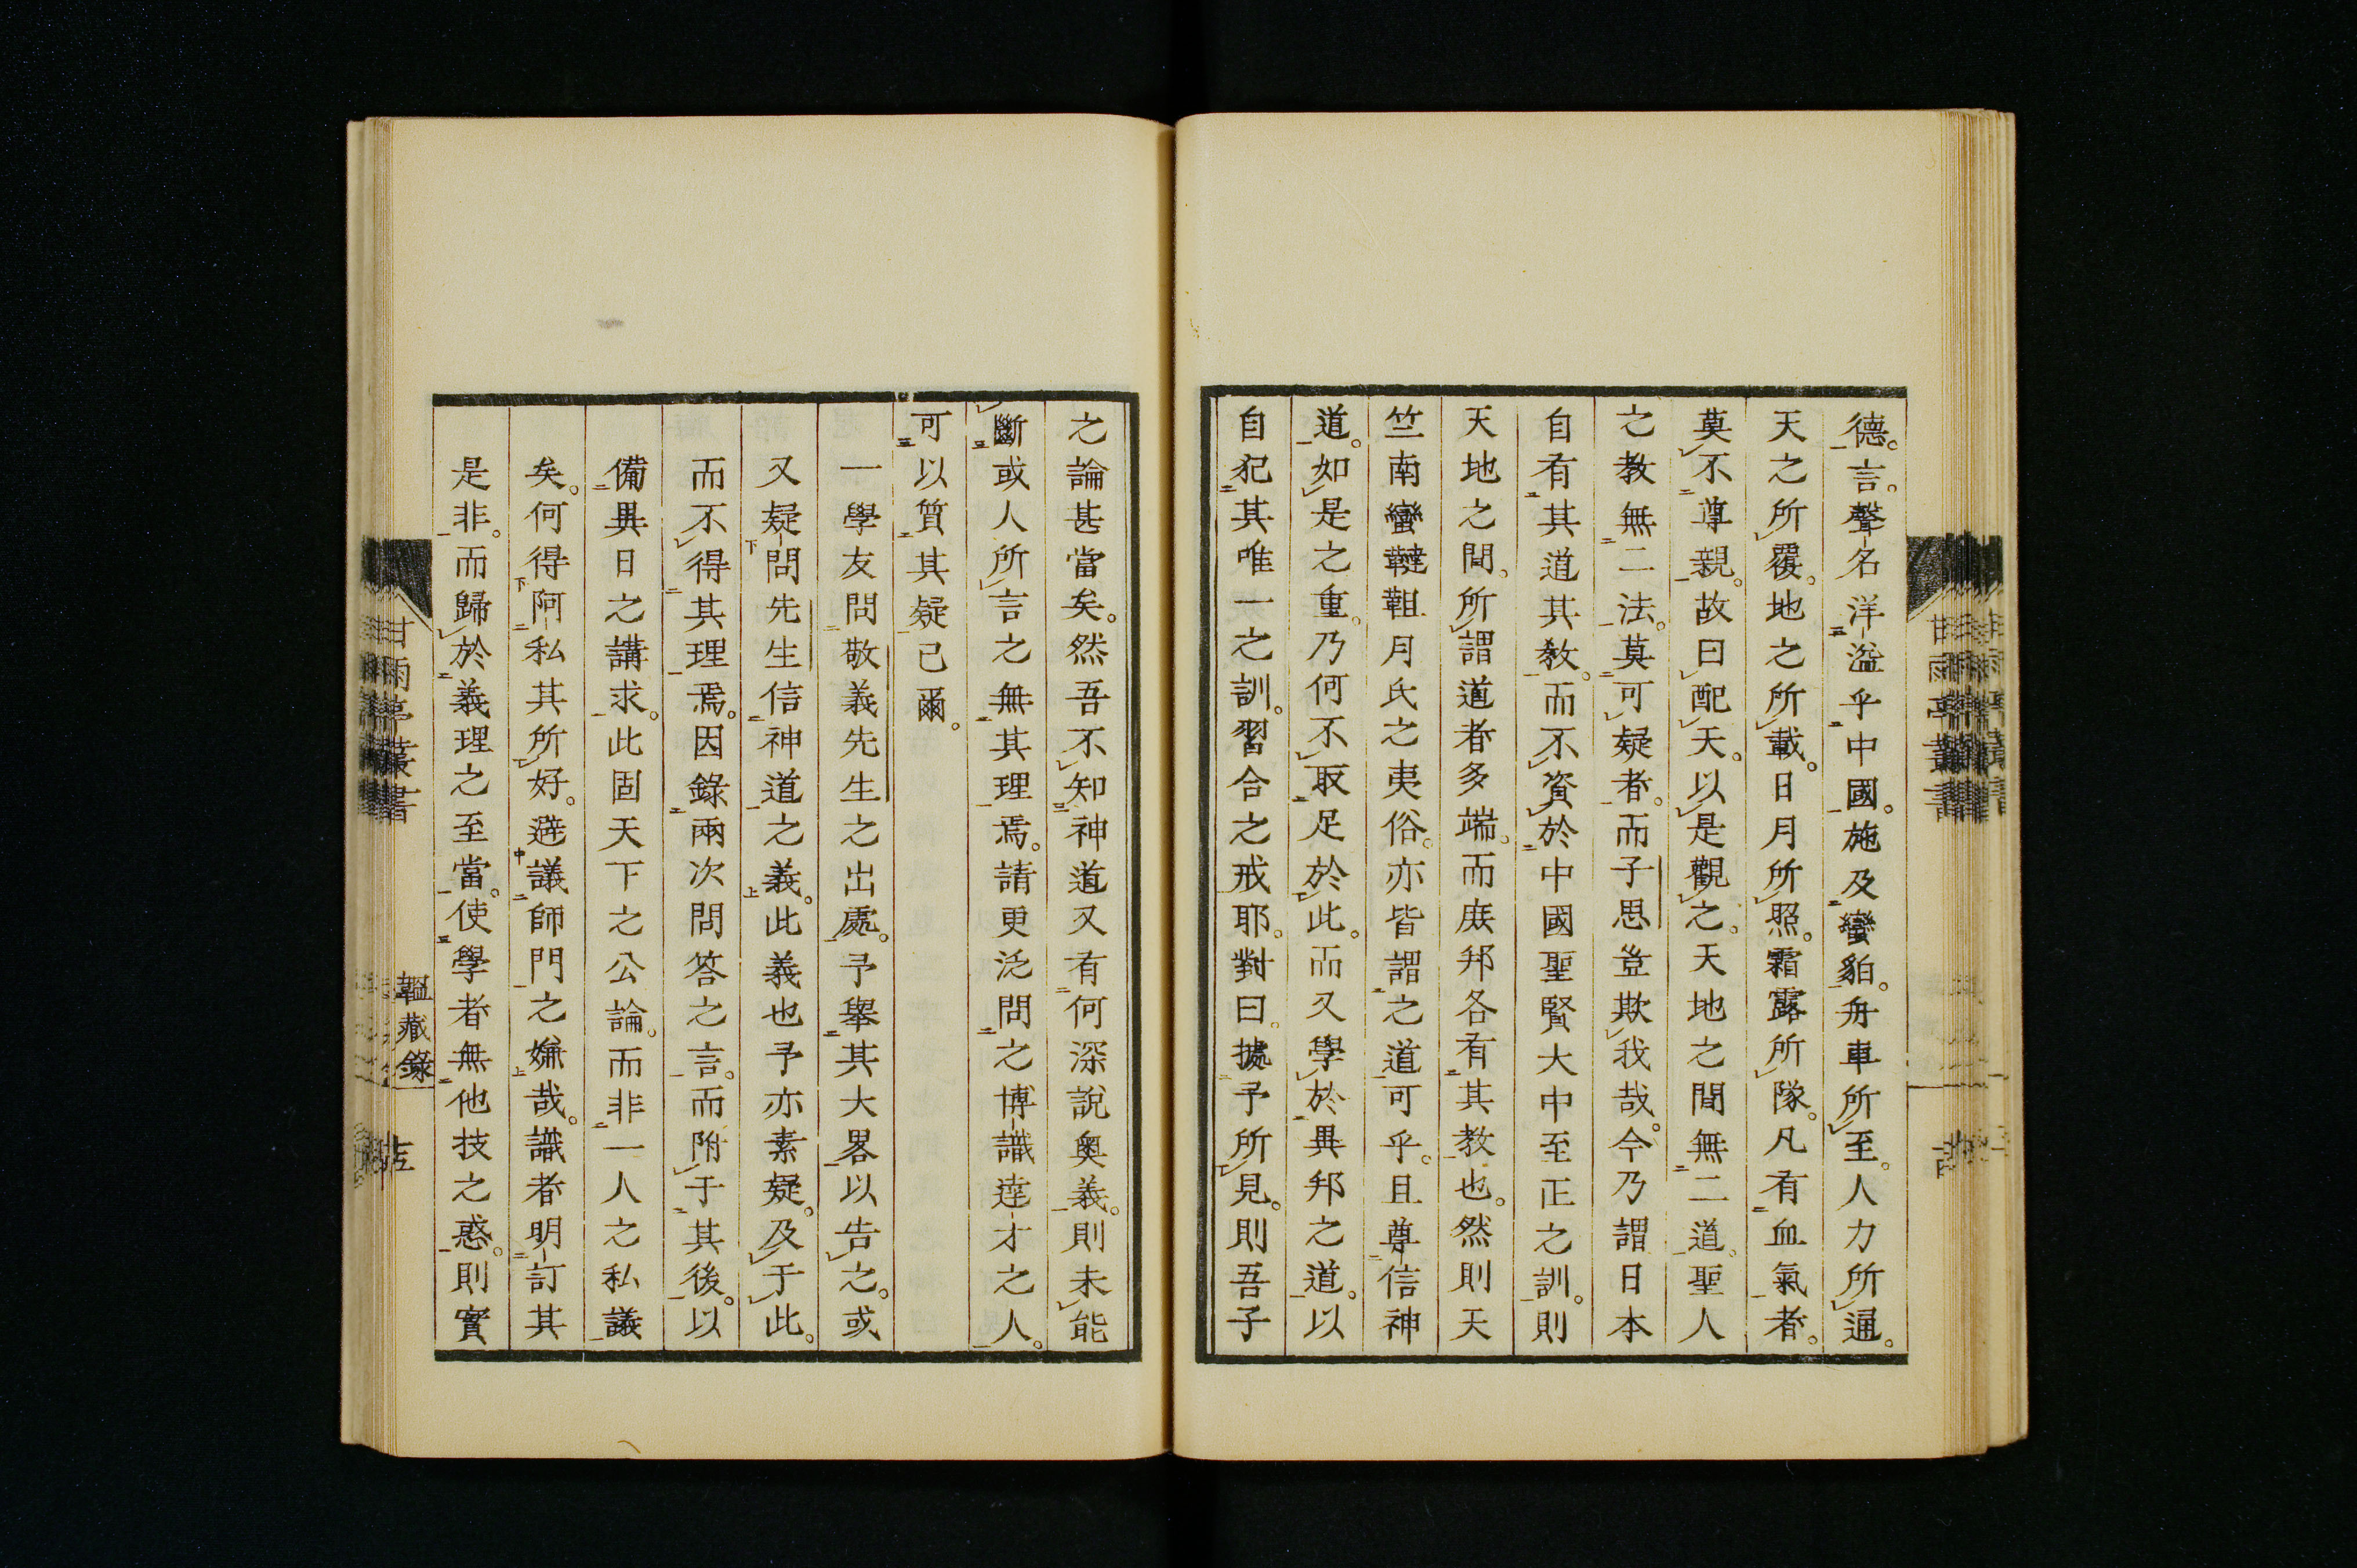 德。言。聲名洋溢乎中國。施及蠻貊。舟車所至。人力所通。
天之所覆。地之所載。日月所照。霜露所隊。凡有血氣者。
莫不尊親。故曰配天。以是觀之。天地之間無二道。聖人
之教無二法。莫可疑者。而子思豈欺我哉。今乃謂日本
自有其道其教。而不資於中國聖賢大中至正之訓。則
天地之間。所謂道者多端。而庶邦各有其教也。然則天
竺南蠻韃靼月氏之夷俗。亦皆謂之道可乎。且尊信神
道。如是之重。乃何不取足於此。而又學於異邦之道。以
自犯其唯一之訓。習合之戒耶。對曰。據予所見。則吾子
之論甚當矣。然吾不知神道又有何深說奧義。則未能
斷或人所言之無其理焉。請更泛問之博識達才之人。
可以質其疑已爾。
一學友問敬義先生之出處。予舉其大畧以告之。或
又疑問先生信神道之義。此義也予亦素疑。及于此。
而不得其理焉。因錄兩次問答之言。而附于其後。以
備異日之講求。此固天下之公論。而非一人之私議
矣。何得阿私其所好。避議師門之嫌哉。識者明訂其
是非。而歸於義理之至當。使學者無他技之惑。則實
甘雨亭叢書
韞藏錄